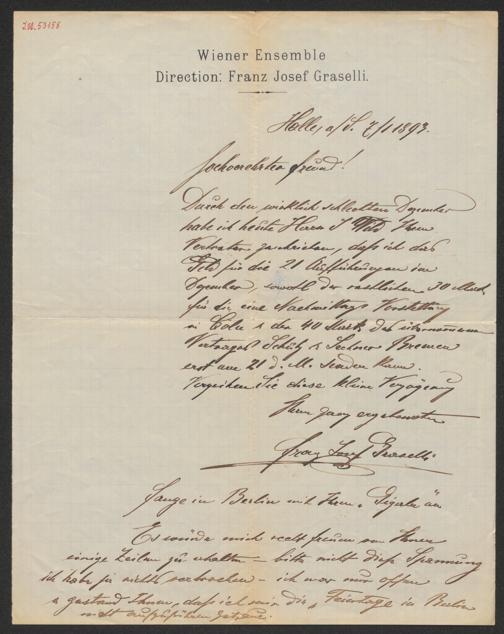 I.N. 53158
Wiener Ensemble
Direction: Franz Josef Graselli.
Halle, a/S. 7/1 1893.
Hochverehrter Freund!
Durch den wirklich schlechten Dezember
habe ich heute Herrn Ihrem
Vertreter geschrieben, daß ich das
Geld für die 21 Aufführungen im
Dezember, sowohl der restlichen 30 Mark
für die eine Nachmittags Vorstellung
in Cöln & den 40 Mark des
Vertrages Bremen
erst am 21 d. M. senden kann.
Verzeihen Sie diese kleine Verzögerung
Ihrem ganz ergebensten
Franz Josef Graselli
in Berlin mit Ihrem
Es würde mich recht freuen von Ihnen
einige Zeilen zu erhalten – bitte nicht diese Spannung
ich habe ja nichts verbrochen – ich war nur offen
& gestand Ihnen, daß ich mir die Feiertage in Berlin
nicht